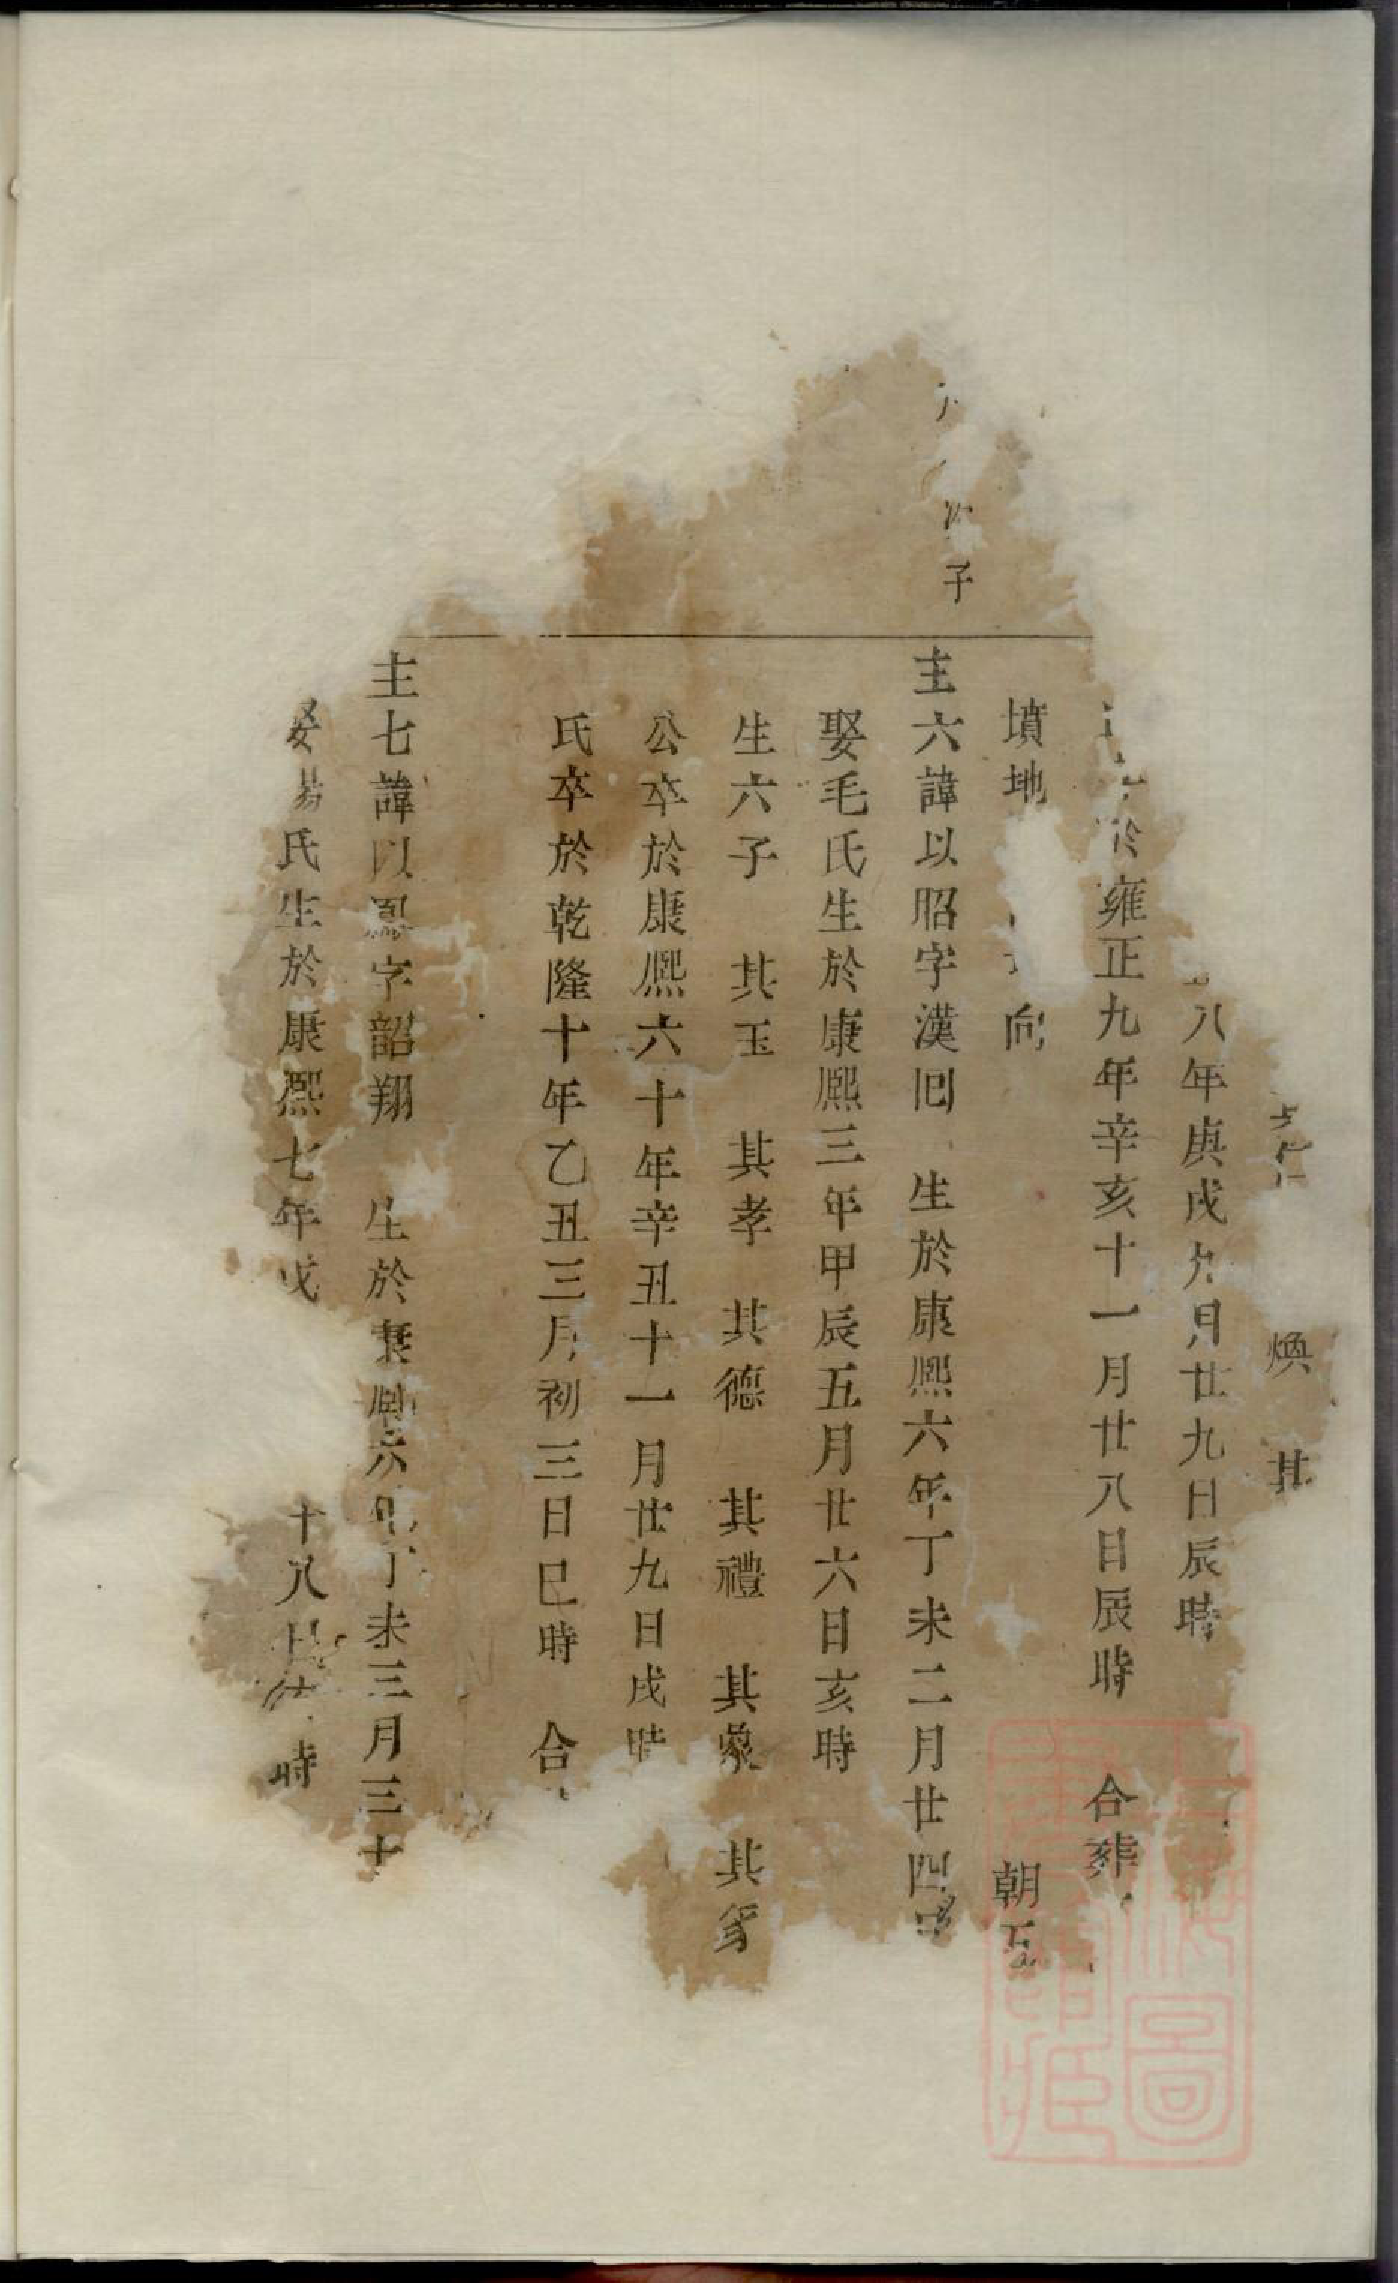 煥　其
八年庚戌九月廿九日辰時
於雍正九年辛亥十一月廿八日辰時　合葬
墳地　向　朝
子
主六諱以昭字漢回　生於康熙六年丁未二月廿四
娶毛氏生於康熙三年甲辰五月廿六日亥時
生六子　其玉　其孝　其德　其禮　其象　其
公卒於康熙六十年辛丑十一月廿九日戌時
氏卒於乾隆十年乙丑三月初三日巳時　合
主七諱以鳳字韶翔　生於康熙六年丁未三月三十
娶易氏生於康熙七年戊　十八日　時